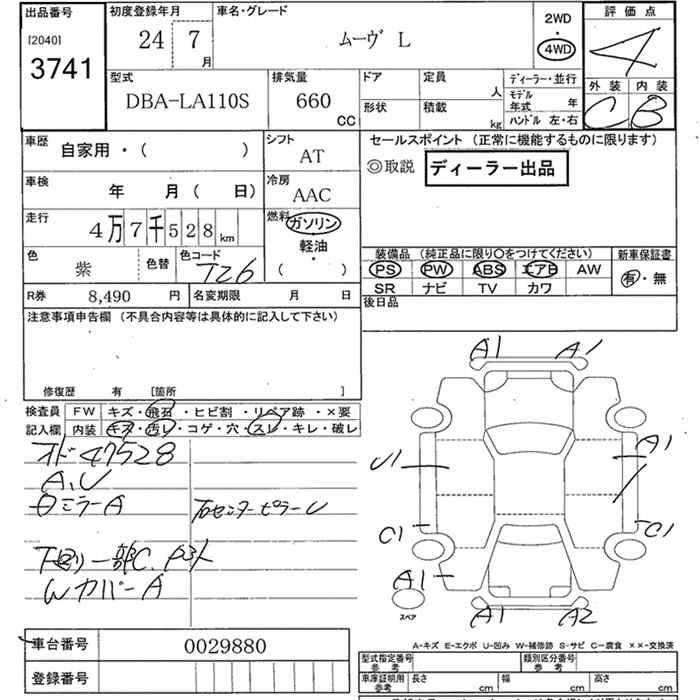 出品番号 初度登録年月 車名・グレード 2WD 評価点
[2040] 24 7 月 ムーヴ L 4WD 4
3741
型式 排気量 ドア 定員 人 ディーラー・並行 外装 内装
DBA-LA110S 660 CC 形状 積載 kg モデル年式 年 C B
ハンドル 左・右
車歴 自家用・( ) シフト AT セールスポイント (正常に機能するものに限ります)
◎取説 ディーラー出品
車検 年 月( 日) 冷房 AAC
走行 4万7千528km 燃料 ガソリン・軽油・( )
色 紫 色替 色コード T26 装備品 (純正品に限り○をつけてください) 新車保証書
PS PW ABS エアB AW 有・無
SR ナビ TV カワ
R券 8,490 円 名変期限 月 日 後日品
注意事項申告欄 (不具合内容等は具体的に記入して下さい)
修復歴 有 [箇所 ]
検査員 FW キズ・飛石・ヒビ割・リペア跡・×要
記入欄 内装 キズ・汚レ・コゲ・穴・スレ・キレ・破レ
オド47528
A、U
ミラーA 右センターピラーU
下回り一部C
WカバーA
A1 A1
U1 A1
C1 C1
A1
スペア A1 A2
A-キズ E-エクボ U-凹み W-補修跡 S-サビ C-腐食 ××-交換済
車台番号 0029880
登録番号
型式指定番号 参考 類別区分番号 参考
車庫証明用 参考 長さ cm 幅 cm 高さ cm